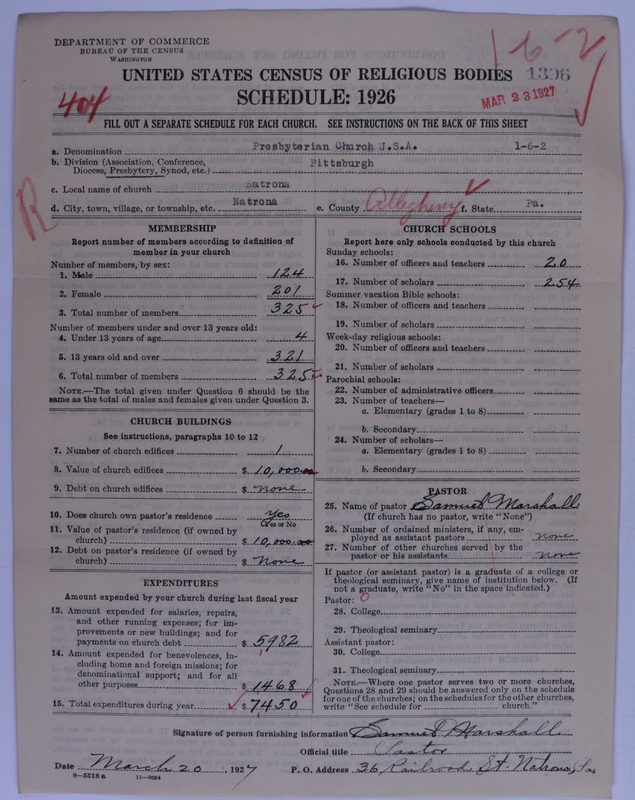 DEPARTMENT OF COMMERCE
BUREAU OF THE CENSUS
WASHINGTON
1-6-2
UNITED STATES CENSUS OF RELIGIOUS BODIES
1396
SCHEDULE: 1926
MAR 23 1927
404
FILL OUT A SEPARATE SCHEDULE FOR EACH CHURCH. SEE INSTRUCTIONS ON THE BACK OF THIS SHEET
a. Denomination Presbyterian Church U.S.A. 1-6-2
b. Division (Association, Conference, Diocese, Presbytery, Synod, etc.) Pittsburgh
c. Local name of church Natrona
d. City, town, village, or township, etc. Natrona e. County Allegheny f. State Pa.
R
MEMBERSHIP
Report number of members according to definition of
member in your church
Number of members, by sex:
1. Male 124
2. Female 201
3. Total number of members 325
Number of members under and over 13 years old:
4. Under 13 years of age 4
5. 13 years old and over 321
6. Total number of members 325
NOTE.—The total given under Question 6 should be
same as the total of males and females given under Question 3.
CHURCH BUILDINGS
See instructions, paragraphs 10 to 12
7. Number of church edifices 1
8. Value of church edifices $ 10,000.00
9. Debt on church edifices $ None
10. Does church own pastor's residence Yes
(Yes or No
11. Value of pastor's residence (if owned by
church) $ 10,000.00
12. Debt on pastor's residence (if owned by
church) $ None
EXPENDITURES
Amount expended by your church during last fiscal year
13. Amount expended for salaries, repairs,
and other running expenses; for im-
provements or new buildings; and for
payments on church debt $ 5982
14. Amount expended for benevolences, in-
cluding home and foreign missions; for
denominational support; and for all
other purposes $ 1468
15. Total expenditures during year $ 7450
CHURCH SCHOOLS
Report here only schools conducted by this church
Sunday schools:
16. Number of officers and teachers 20
17. Number of scholars 254
Summer vacation Bible schools:
18. Number of officers and teachers
19. Number of scholars
Week-day religious schools:
20. Number of officers and teachers
21. Number of scholars
Parochial schools:
22. Number of administrative officers
23. Number of teachers—
a. Elementary (grades 1 to 8)
b. Secondary
24. Number of scholars—
a. Elementary (grades 1 to 8)
b. Secondary
PASTOR
25. Name of pastor Samuel Marshall
(If church has no pastor, write "None")
26. Number of ordained ministers, if any, em-
ployed as assistant pastors none
27. Number of other churches served by the
pastor or his assistants none
If pastor (or assistant pastor) is a graduate of a college or
theological seminary, give name of institution below. (If
not a graduate, write "No" in the space indicated.)
Pastor: 0
28. College
29. Theological seminary
Assistant pastor:
30. College
31. Theological seminary
NOTE.—Where one pastor serves two or more churches,
Questions 28 and 29 should be answered only on the schedule
for one of the churches; on the schedules for the other churches,
write "See schedule for church."
Signature of person furnishing information Samuel Marshall
Official title Pastor
Date March 20, 1927 P. O. Address 36 Railroad St. Natrona, Pa
8-5518 a 11-9034